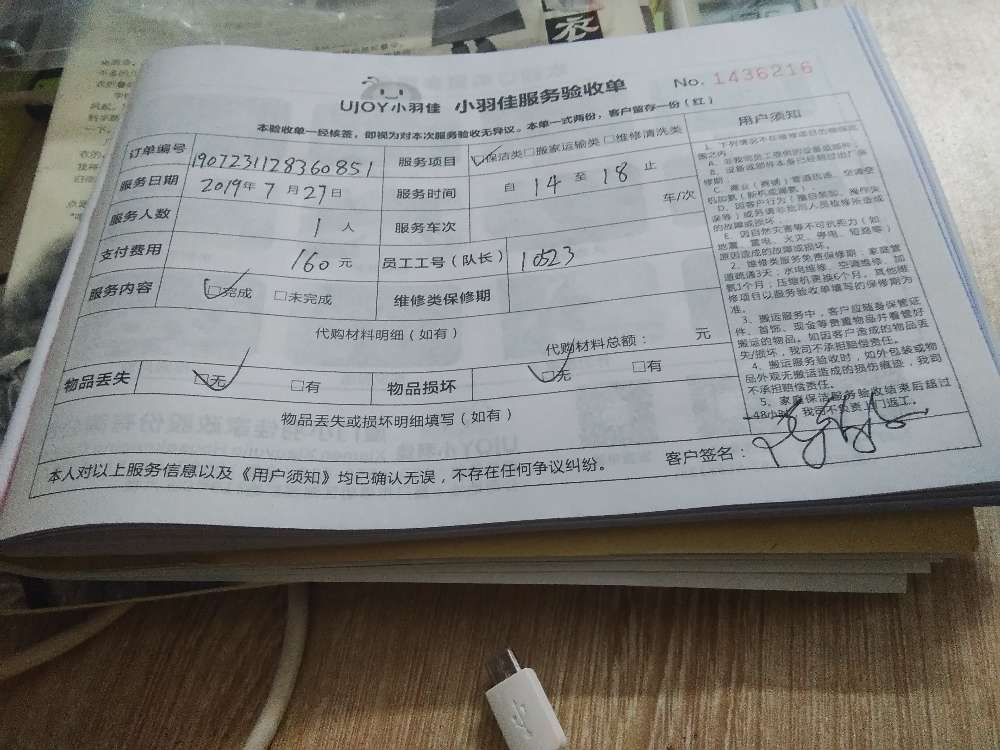 UJOY小羽佳 小羽佳服务验收单
No. 1436216
本验收单一经核签，即视为对本次服务验收无异议。本单一式两份，客户留存一份（红）
订单编号 1907231128360851 服务项目 ☑保洁类□搬家运输类□维修清洗类
服务日期 2019年7月27日 服务时间 自 14 至 18 止
服务人数 1 人 服务车次 车/次
支付费用 160 元 员工工号（队长） 10523
服务内容 ☑完成 □未完成 维修类保修期
代购材料明细（如有）
代购材料总额： 元
物品丢失 ☑无 □有 物品损坏 ☑无 □有
物品丢失或损坏明细填写（如有）
本人对以上服务信息以及《用户须知》均已确认无误，不存在任何争议纠纷。 客户签名：
用户须知
1、下列情况不在维修项目的保修范
围之内：
A、非我司员工提供的设备或部件；
B、设备或部件本身已经超过出厂保
修期
C、
空调空
机加氨（新机或漏氨）
D、因客户行为（擅自装卸、操作失
误等）或另请非我司人员检修所造成
的故障或损坏
E、因自然灾害等不可抗力（如
地震、雷电、火灾、停电、短路等）
原因造成的故障或损坏。
2、维修类服务免费保修期，家庭管
道疏通3天；水电维修、空调维修、加
氨1个月；压缩机更换6个月。其他维
修项目以服务验收单填写的保修期为
准。
3、搬运服务中，客户应随身保管证
件、首饰、现金等贵重物品并看管好
搬运的物品。如因客户造成的物品丢
失/损坏，我司不承担赔偿责任。
4、搬运服务验收时，如外包装或物
品外观无搬运造成的损伤痕迹，我司
不承担赔偿责任。
5、家庭保洁服务验收结束后超过
48小时，我司不负责上门返工。